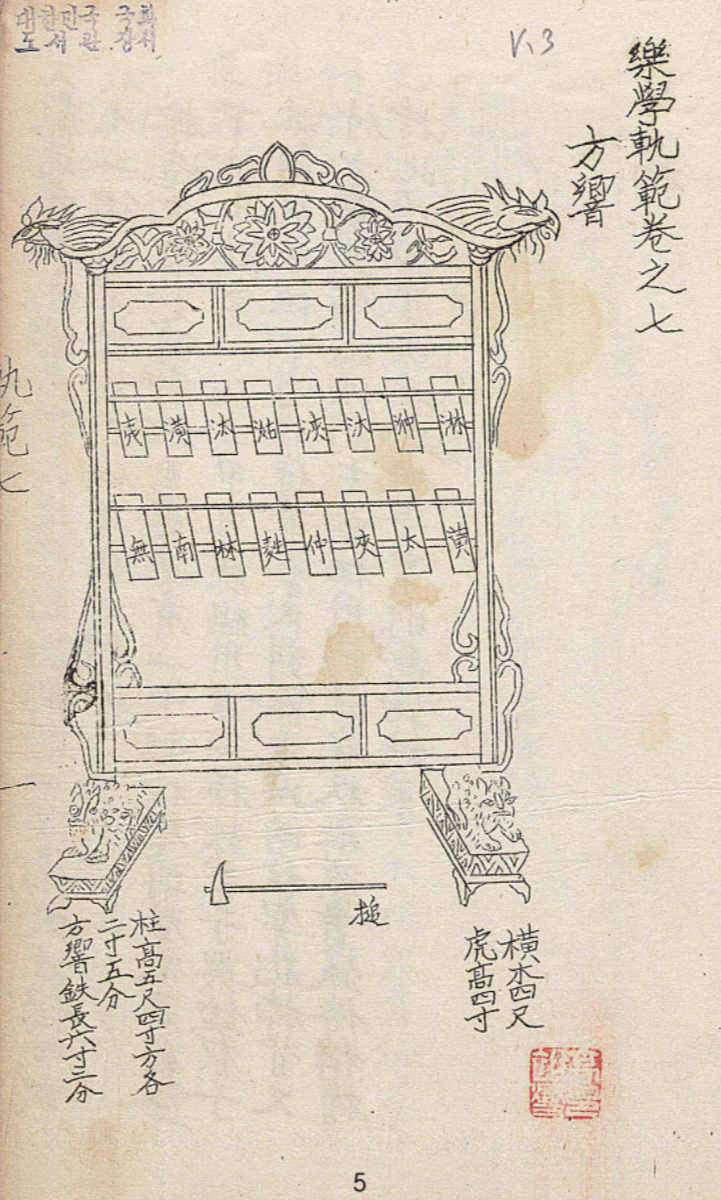 대한민국 국회
도서관 장서
V.3
樂學軌範卷之七
方響
夷 潢 汰 㴌 浹 汰 㳞 淋
無 南 林 蕤 仲 夾 太 黃
槌
橫木四尺
虎高四寸
柱高五尺四寸方各
二寸五分
方響鉄長六寸二分
軌範七
一
5